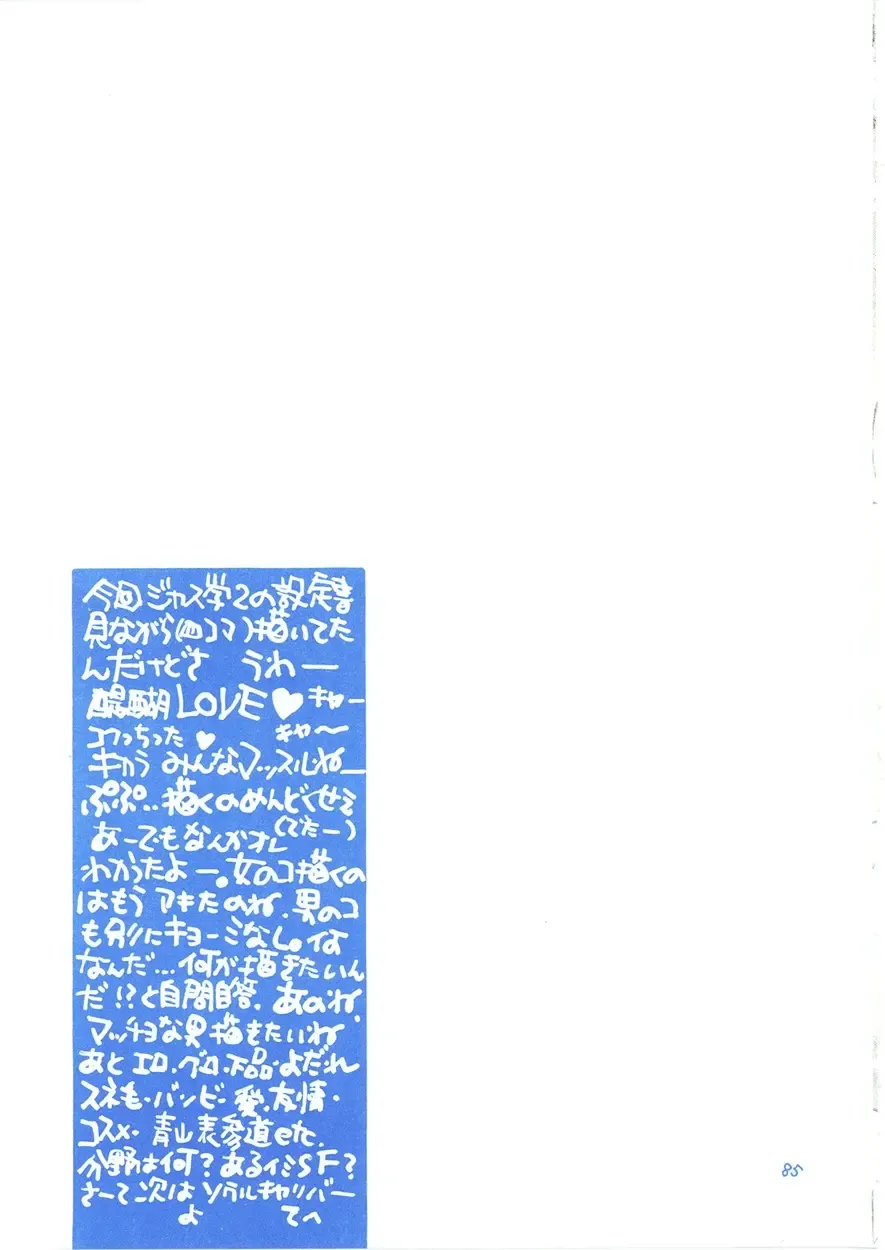 今回ジャス学2の設定書
見ながら(四コマ)描いてた
んだけどさ うわー
醍醐LOVE♥キャー
コワっちった♥ キャ〜
みんなマッスルねー
ぷぷ…描くのめんどくせえ
(でたー)
あーでもなんかオレ
わかったよー。女のコ描くの
はもうアキたのね、男のコ
も別にキョーミなし。
なんだ…何が描きたいん
だ!?と自問自答、あのね、
マッチョな男描きたいね、
あとエロ・グロ・下品・よだれ
スネ毛・バンビー愛・友情・
コスメ・青山表参道etc.
分野は何?あるイミSF?
さーて次はソウルキャリバー
よ てへ
85